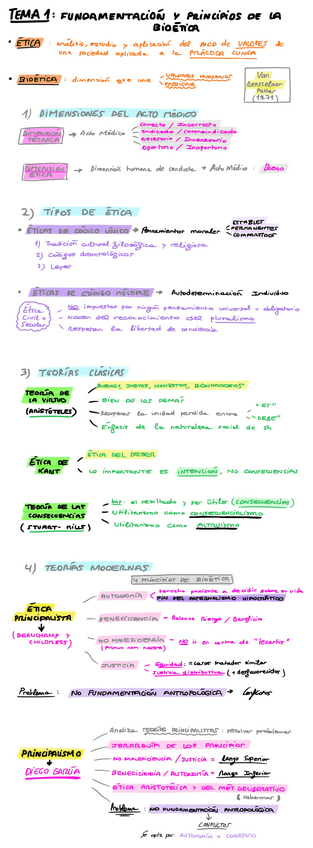 TEMA 1: FUNDAMENTACIÓN Y PRINCIPIOS DE LA
BIOÉTICA
• ÉTICA: análisis, estudio y aplicación del arco de VALORES de
una sociedad aplicada a la PRÁCTICA CLÍNICA
• BIOÉTICA: dimensión que une VALORES HUMANOS
MEDICINA
Van
Potter
(1971)
1) DIMENSIONES DEL ACTO MÉDICO
DIMENSIÓN TÉCNICA → Acto Médico
Correcto / Incorrecto
Indicado / Contraindicado
Necesario / Innecesario
Oportuno / Inoportuno
DIMENSIÓN ÉTICA → Dimensión humana de conducta → Acto Médico: Bueno
2) TIPOS DE ÉTICA
• ÉTICAS DE CÓDIGO ÚNICO → Pensamientos morales
ESTABLES
PERMANENTES
COMPARTIDOS
1) Tradición cultural filosófica y religiosa
2) Códigos deontológicos
3) Leyes
• ÉTICAS DE CÓDIGO MÚLTIPLE → Autodeterminación Individuo
Ética
Civil o
Secular
- NO impuestas por ningún pensamiento universal u obligatorio
- Nacen del reconocimiento del pluralismo
- Respetan la libertad de conciencia
3) TEORÍAS CLÁSICAS
TEORÍA DE
LA VIRTUD
(ARISTÓTELES)
BUENOS, JUSTOS, HONESTOS, BONDADOSOS
BIEN DE LOS DEMÁS
Recuperar la unidad perdida entre
"ES"
"DEBE"
Énfasis de la naturaleza social de sh
ÉTICA DE
KANT
ÉTICA DEL DEBER
LO IMPORTANTE ES INTENCIÓN, NO CONSECUENCIAS
TEORÍA DE LAS
CONSECUENCIAS
(STUART-MILLS)
Imp: el resultado y ser útiles (CONSECUENCIAS)
Utilitarismo como CONSECUENCIALISMO
Utilitarismo como ALTRUISMO
4) TEORÍAS MODERNAS
4 PRINCIPIOS DE BIOÉTICA
ÉTICA
PRINCIPALISTA
(BEAUCHAMP Y
CHILDRESS)
AUTONOMÍA
Derecho paciente a decidir sobre su vida
FIN DEL PATERNALISMO HIPOCRÁTICO
BENEFICENCIA - Balance Riesgo / Beneficio
NO MALEFICENCIA - NO ir en contra de
(Primum non nocere)
JUSTICIA
Equidad: = casos tratados similar
Justicia distributiva (+ desfavorecidos)
Problema: NO FUNDAMENTACIÓN ANTROPOLÓGICA → Conflictos
PRINCIPALISMO
DIEGO GARCÍA
Analiza TEORÍAS PRINCIPALISTAS: resolver problemas
JERARQUÍA DE LOS PRINCIPIOS
NO MALEFICENCIA / JUSTICIA = Rango Superior
BENEFICENCIA / AUTONOMÍA = Rango Inferior
ÉTICA ARISTOTÉLICA Y DEL MÉT. DELIBERATIVO
(Habermas)
Problema: NO FUNDAMENTACIÓN ANTROPOLÓGICA
CONFLICTOS
Se opta por AUTONOMÍA o CONSENSO